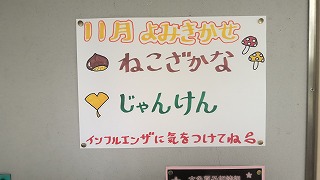 11月 よみきかせ
ねこざかな
じゃんけん
インフルエンザに気をつけてね